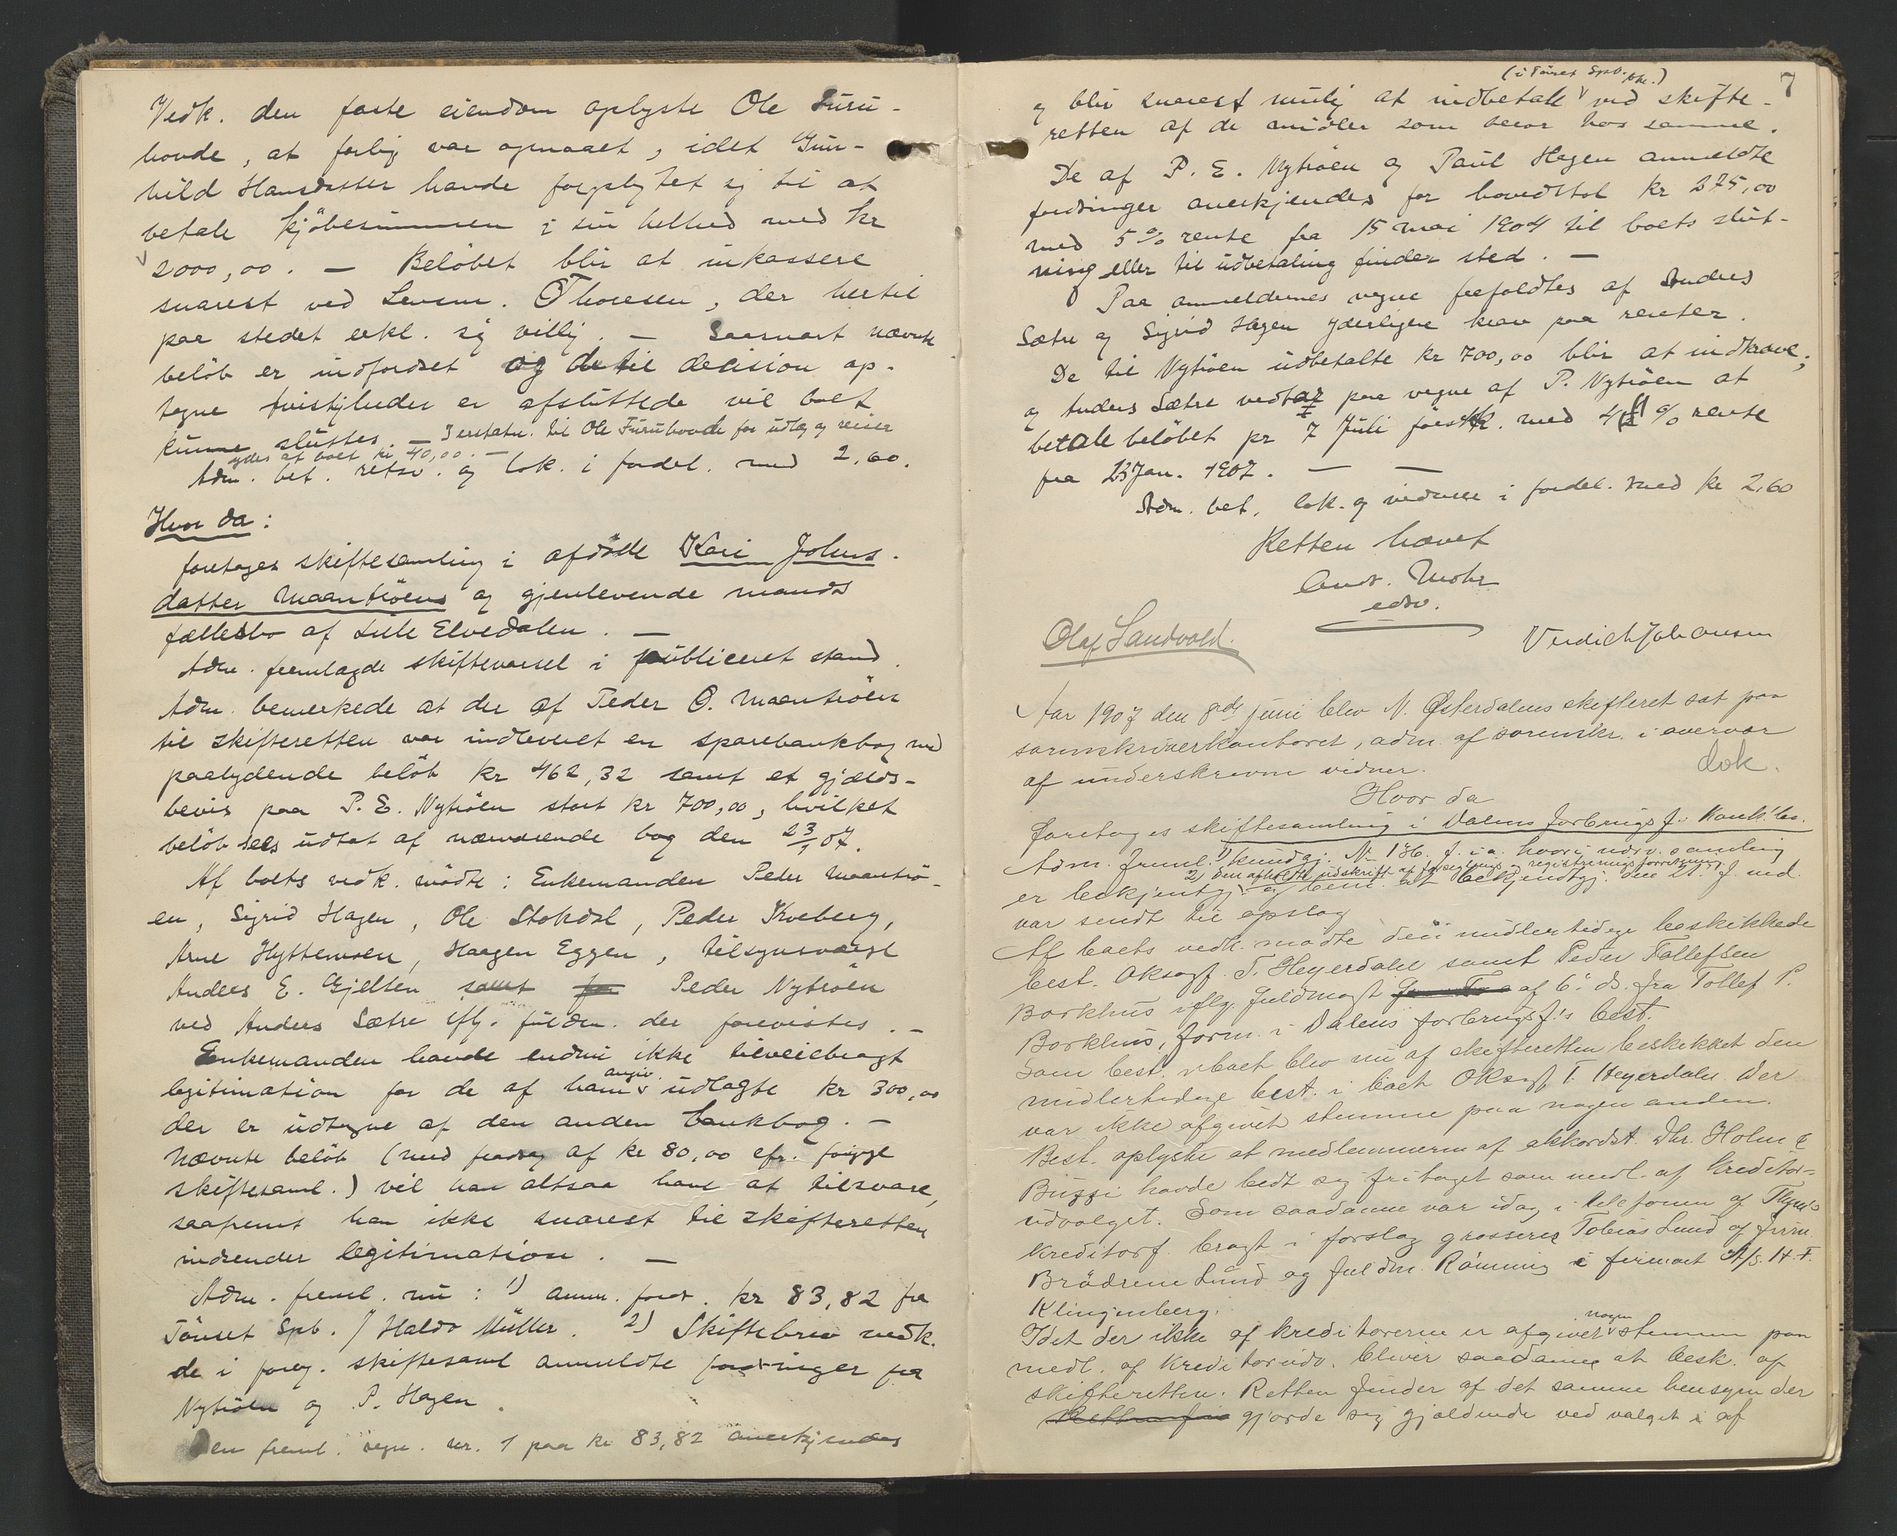 Vedk. den faste eiendom oplyste Ole Furu-
hovde, at forlig var opnaaet, idet Gun-
hild Hansdatter havde forpligtet sig til at
betale kjöbesummen i sin helhed med kr
2000,00. — Beløbet blir at inkassere
snarest ved Lensm. Thoresen, der hertil
paa stedet erkl. sig villig. — Saasnart nævnte
beløb er indfordret og de til decision op-
tagne tvistigheder er afsluttede vil boet
kunne sluttes. — I erstatn. til Ole Furuhovde for udlæg og reiser
ydes af boet kr 40,00. —
Adm. bet. retsv. og lok. i fordel. med 2,60.
Hvor da:
foretages skiftesamling i afdöde Kari Johns-
datter Maantröens og gjenlevende mands
fællesbo af Lille Elvedalen. —
Adm. fremlagde skiftevarsel i publiceret stand.
Adm. bemerkede at der af Peder O. Maantröen
til skifteretten var indleveret en sparebankbog med
paalydende beløb kr 462,32 samt et gjælds-
bevis paa P. E. Nytröen stort kr 700,00, hvilket
beløb sees udtat af nærværende bog den 23/1 07.
Af boets vedk. mödte: Enkemanden Peder Maantrö-
en, Sigrid Hagen, Ole Stokdal, Peder Kveberg,
Arne Hyttemoen, Haagen Eggen, tilsynsværge
Anders E. Gjelten samt for Peder Nytröen
ved Anders Sætre iflg. fuldm. der forevistes. —
Enkemanden havde endnu ikke tilveiebragt
legitimation for de af ham angiv. udlagte kr 300,00
der er udtagne af den anden bankbog. —
Nævnte beløb (med fradrag af kr 80,00 cfr. forrige
skiftesaml.) vil han altsaa have at tilsvare,
saafremt han ikke snarest til skifteretten
indsender legitimation. —
Adm. freml. nu: 1) anm. fordr. kr 83,82 fra
Tönset Spb. / Haldo Müller. 2) Skiftebrev vedk.
de i foreg. skiftesaml anmeldte fordringer fra
Nytröen og P. Hagen.
Den freml. regn. nr. 1 paa kr 83,82 anerkjendes
7
(i Tönset Spb. bk.)
og blir snarest mulig at indbetale ved skifte-
retten af de midler som beror hos samme.
De af P. E. Nytröen og Paul Hagen anmeldte
fordringer anerkjendes for hovedstol kr 275,00
med 5 % rente fra 15 mai 1904 til boets slut-
ning eller til udbetaling finder sted. —
Paa anmeldernes vegne frafoldtes af Anders
Sætre og Sigrid Hagen yderligere krav paa renter.
De til Nytröen udbetalte kr 700,00 blir at indkræve,
og Anders Sætre vedtar paa vegne af P. Nytröen at
betale beløbet pr 7 Juli förstk. med 4½ % rente
fra 23 Jan. 1907. — —
Adm. bet. lok. og vidner i fordel. med kr 2,60
Retten hævet
Andr. Mohr
edsv.
Olaf Sandvold. Vendich Johansen
Aar 1907 den 8de juni blev N. Østerdalens skifteret sat paa
sorenskriverkontoret, adm. af sorenskr. i overvær
af underskrevne vidner. dok.
Hvor da
foretages skiftesamling i Dalens forbrugsf.s konk.bo.
Adm. freml. 1) kundgj. Nr 136 f. i a. hvori udv. samling
2) bem. at udskrift af forseglings og registreringsforretning
er bekjentgj. og bem. at bekjendtgj. den 21. f. md.
var sendt til opslag
Af boets vedk. mødte den midlertidige beskikkede
best. Oksagf. T. Heyerdahl samt Peder Tollefsen
Borkhus iflg. fuldmagt af 6. ds. fra Tollef P.
Borkhus, form. i Dalens forbrugsf.'s best.
Som best. i boet blev nu af skifteretten beskikket den
midlertidige best. i boet Oksagf. T. Heyerdahl. Der
var ikke afgivet stemme paa nogen anden.
Best. oplyste at medlemmerne af akkordst. Dhr. Holm &
Buggi havde bedt sig fritaget som medl. af kreditor-
udvalget. Som saadanne var idag i telefonen af
kreditorf. bragt i forslag grosserer Tobias Lund af firm.
Brödrene Lund og fuldm. Rönning i firmaet A/S. H. F.
Klingenberg.
Idet der ikke af kreditorerne er afgivet nogen stemme paa
medl. af kreditorudv. bliver saadanne at besk. af
skifteretten. Retten finder af det samme hensyn der
gjorde sig gjældende ved valget i af